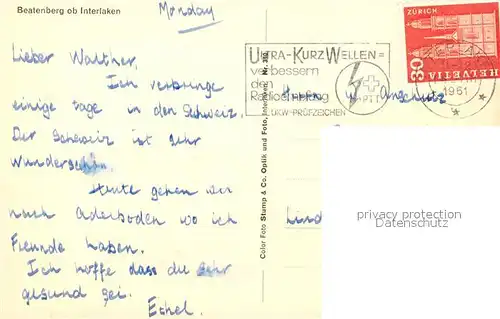 Beatenberg ob Interlaken
Monday
Lieber Walther.
Ich verbringe
einige tage in den Schweiz.
Der Schweiz ist sehr
wunderschön.
Heute gehen wir
nach Aderboden wo ich
Freunde haben.
Ich hoffe dass du sehr
gesund sei.
Ethel.
Color Foto Stamp & Co. Optik und Foto, Interlaken
ULTRA-KURZWELLEN=
verbessern
den
Radioempfang
UKW-PRÜFZEICHEN
PTT
ZÜRICH
30
HELVETIA
1961
Herrn W. Anschütz
Lind
privacy protection
VEREDARIUS